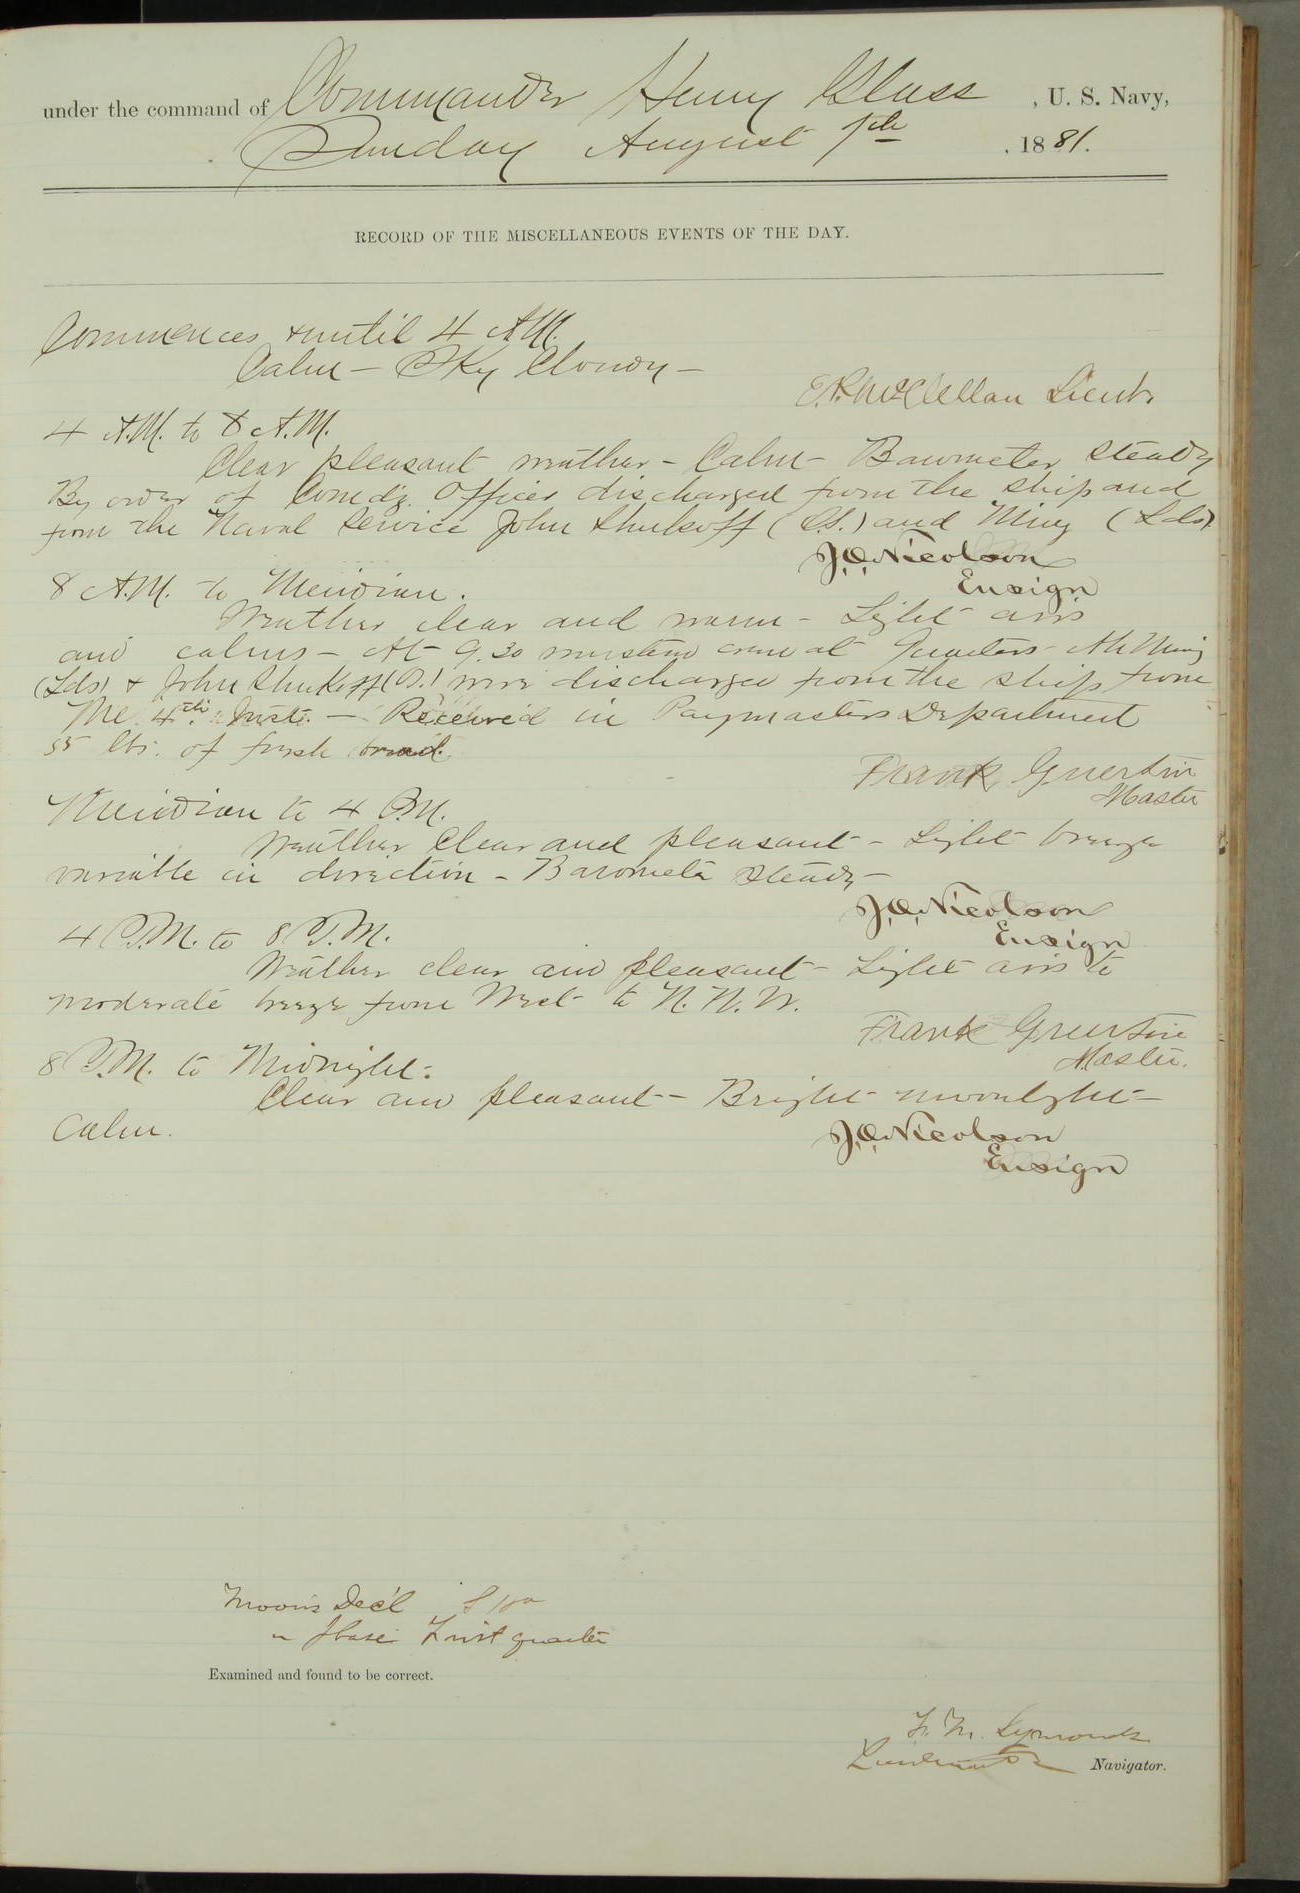 under the command of Commander Henry Glass, U. S. Navy,
Sunday August 7th, 1881.
RECORD OF THE MISCELLANEOUS EVENTS OF THE DAY.
Commences & until 4 A.M.
Calm - Sky Cloudy -
E.P. McClellan Lieut.
4 A.M. to 8 A.M.
Clear pleasant weather - Calm - Barometer steady
By order of Comd'g. Officer discharged from the ship and
from the Naval Service John Shukoff (O.S.) and Ming (Lds)
J.O. Nicolson
Ensign
8 A.M. to Meridian.
Weather clear and warm - Light airs
and calms - At 9.30 mustered crew at Quarters - Ah Ming
(Lds) & John Shukoff were discharged from the ship from
the 4th inst. - Received in Paymasters Department
55 lbs. of fresh bread.
Frank Guertin
Master
Meridian to 4 P.M.
Weather Clear and pleasant - Light breeze
variable in direction - Barometer steady -
J.O. Nicolson
Ensign
4 P.M. to 8 P.M.
Weather clear and pleasant - Light airs to
moderate breeze from West to N. N. W.
Frank Guertin
Master.
8 P.M. to Midnight.
Clear and pleasant - Bright moonlight -
Calm.
J.O. Nicolson
Ensign
Moon's Decl S
" phase First quarter
Examined and found to be correct.
F. M. Symonds
Lieutenant Navigator.